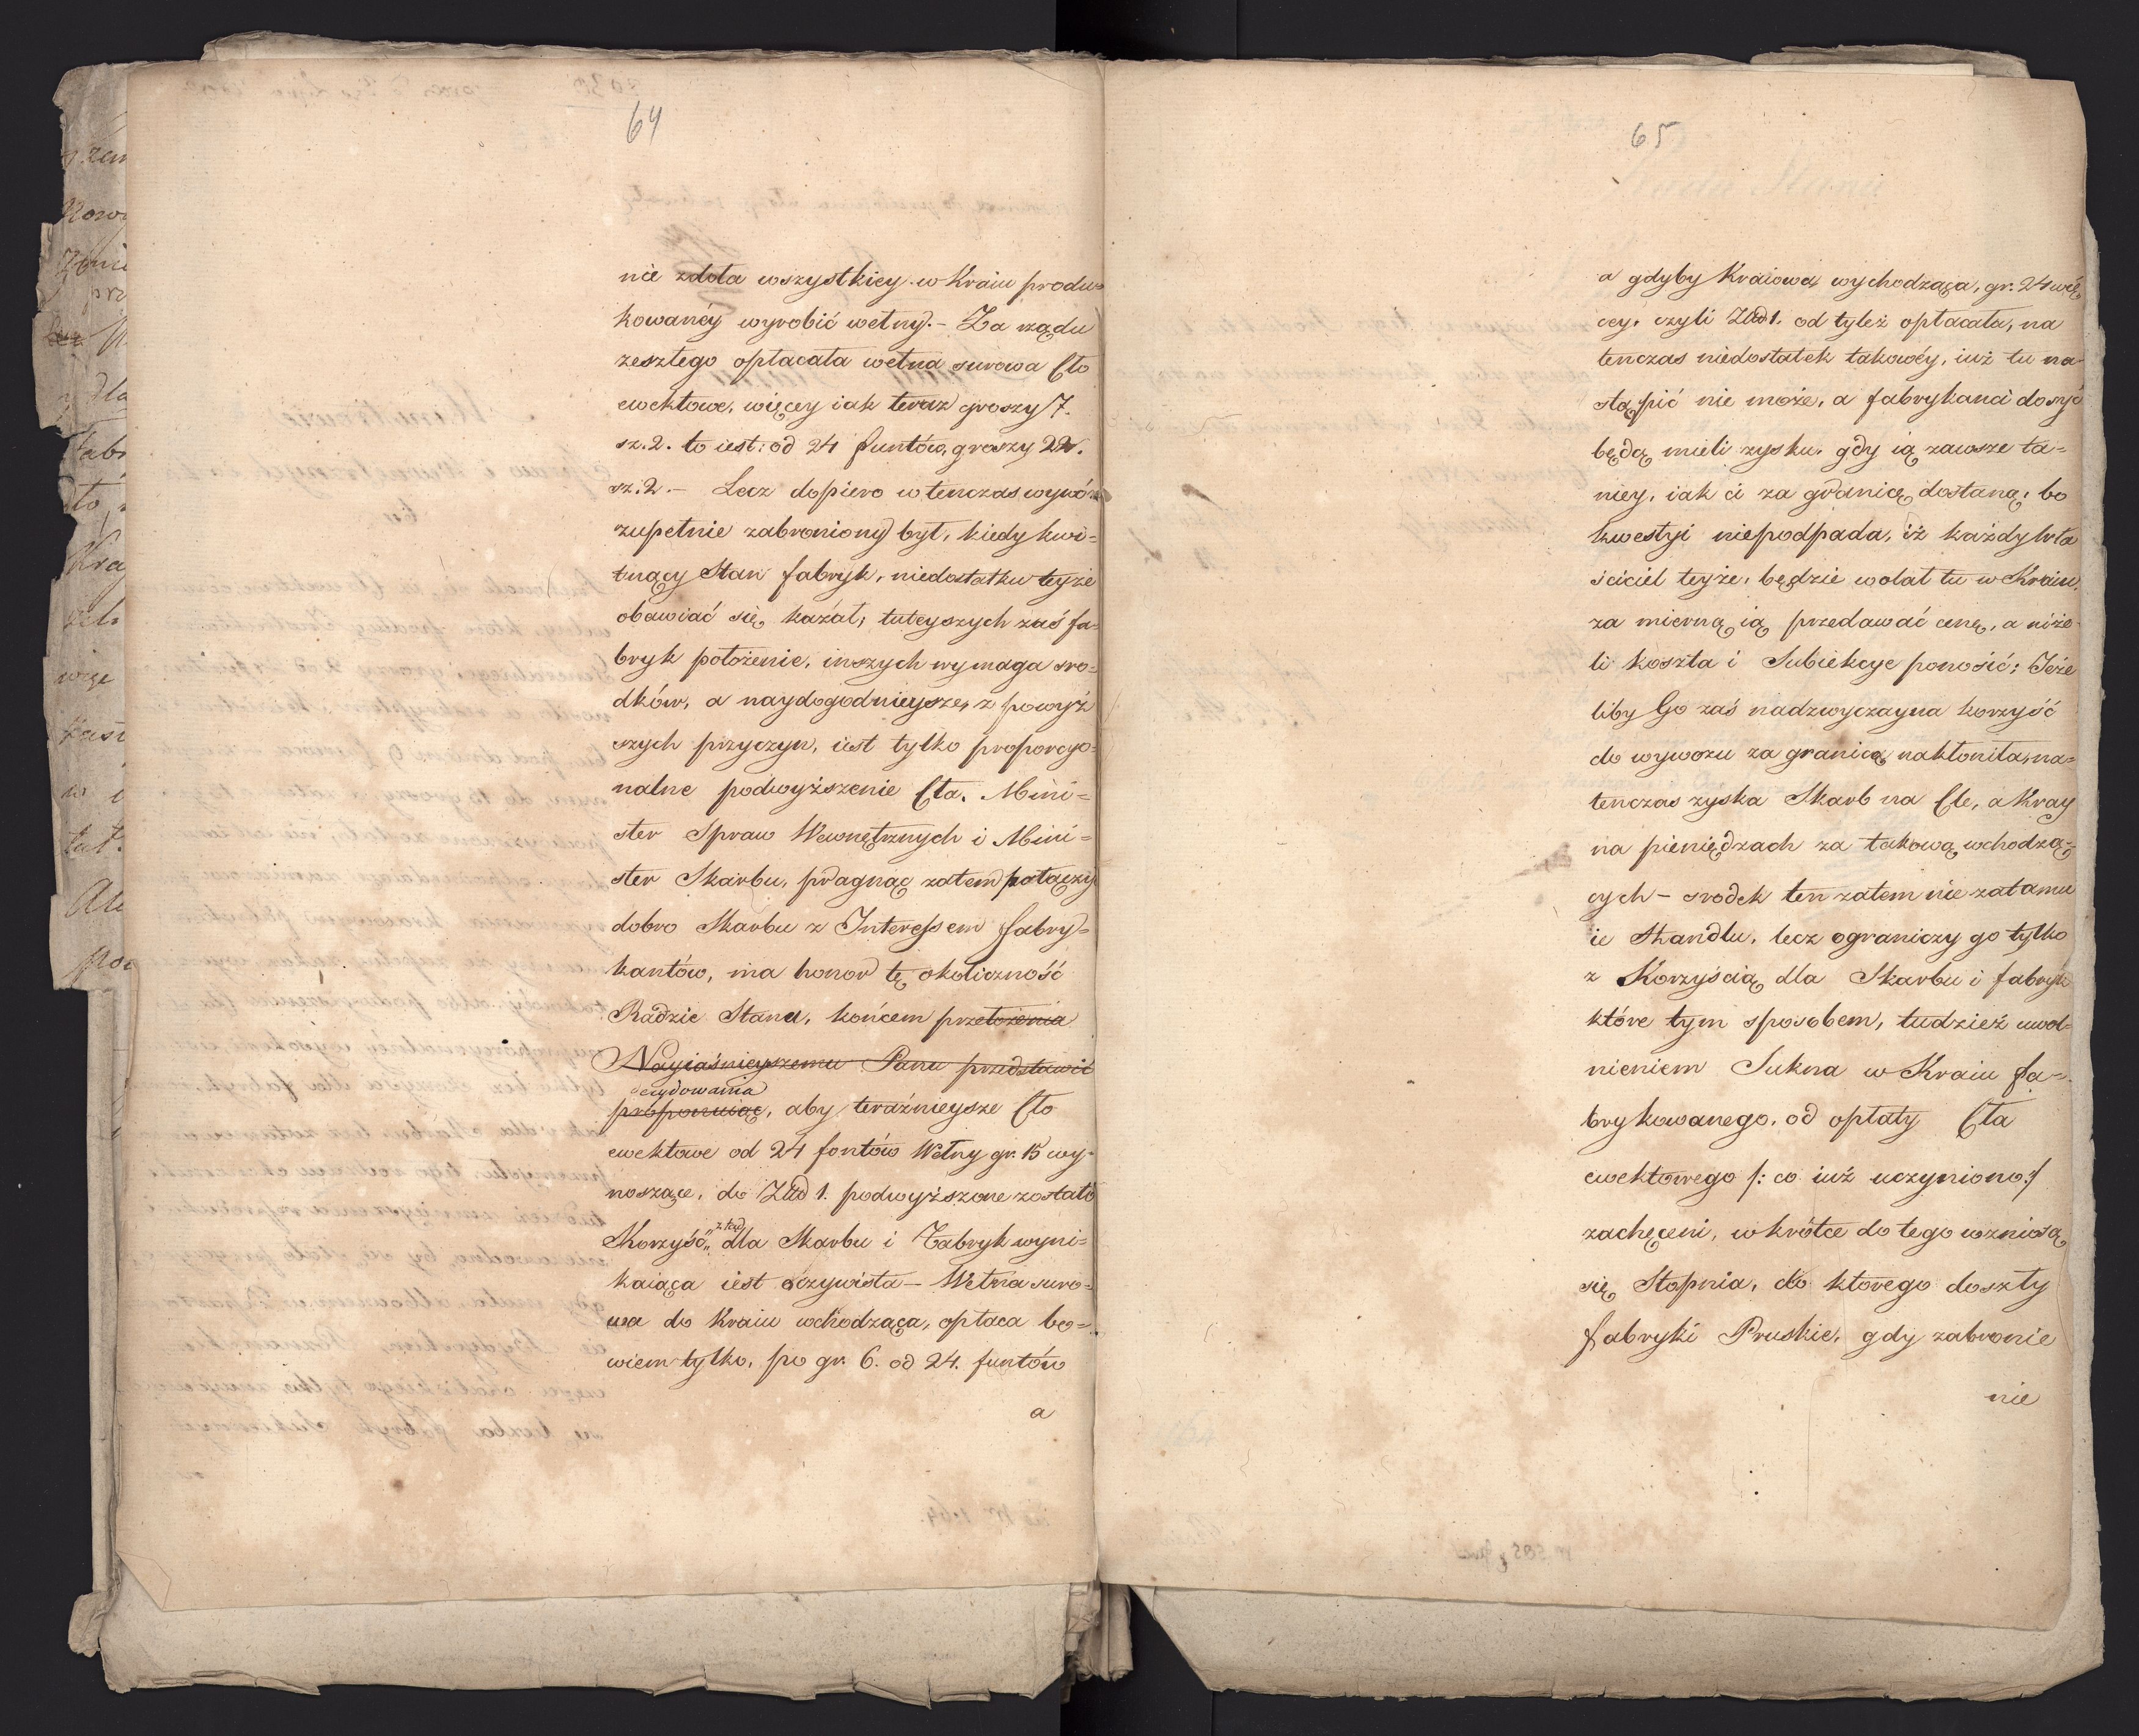 64
nie zdoła wszystkiey w Kraiu produ=
kowanéy wyrobić wełny. – Za rządu
zeszłego opłacała wełna surowa Cło
ewektowe, więcey iak teraz groszy 7.
sz. 2. to iest: od 24 funtów, groszy 22.
sz: 2. – Lecz dopiero wtenczas wywóz
zupełnie zabroniony był, kiedy kwi=
tnący Stan fabryk, niedostatku teyże
obawiać się kazał; tuteyszych zaś fa=
bryk położenie, inszych wymaga sro=
dków, a naydogodnieysze, z powyż
szych przyczyn, iest tylko proporcyo=
nalne podwyższenie Cła. Mini=
ster Spraw Wewnętrznych i Mini=
ster Skarbu, pragnąc zatem połączyć
dobro Skarbu z Interessem fabry=
kantów, ma honor tę okoliczność
Radzie Stanu, końcem przełożenia
Nayiaśnieyszemu Panu przedstawić
decydowania
proponuiąc, aby teraźnieysze Cło
ewektowe od 24 fontów Wełny gr. 15 wy=
noszące, do Złłd 1. podwyższone zostało
ztąd
Korzyść „ dla Skarbu i Fabryk wyni=
kaiąca iest oczywista – Wełna suro=
wa do Kraiu wchodząca, opłaca bo=
wiem tylko, po gr. 6. od 24. funtów
a
65
a gdyby Kraiowa, wychodząca, gr. 24 wię
cey, czyli Złłd 1. od tyleż opłacała, na
tenczas niedostatek takowéy, iuż tu na=
stąpić nie może, a fabrykanci dosyć
będą mieli zysku, gdy ią zawsze ta=
niey, iak ci za granicą dostaną; bo
kwestyi niepodpada, iż każdy wła
ściciel teyże, będzie wolał tu w Kraiu,
za mierną ią przedawać cenę, a niże=
li koszta i Subiekcye ponosić; Jeże
liby Go zaś nadzwyczayna korzyść
do wywozu za granicę nakłoniła, na=
tenczas zyska Skarb na Cle, a Kray
na pieniędzach za takową wchodzą=
cych – srodek ten zatem nie zatamu
ie Handlu, lecz ograniczy go tylko
z Korzyścią dla Skarbu i fabryk
które tym sposobem, tudzież uwol=
nieniem Sukna w Kraiu fa=
brykowanego, od opłaty Cła
ewektowego /: co iuż uczyniono :/
zachęceni, wkrótce do tego wzniosą
się Stopnia, do ktorego doszły
fabryki Pruskie, gdy zabronie
nie